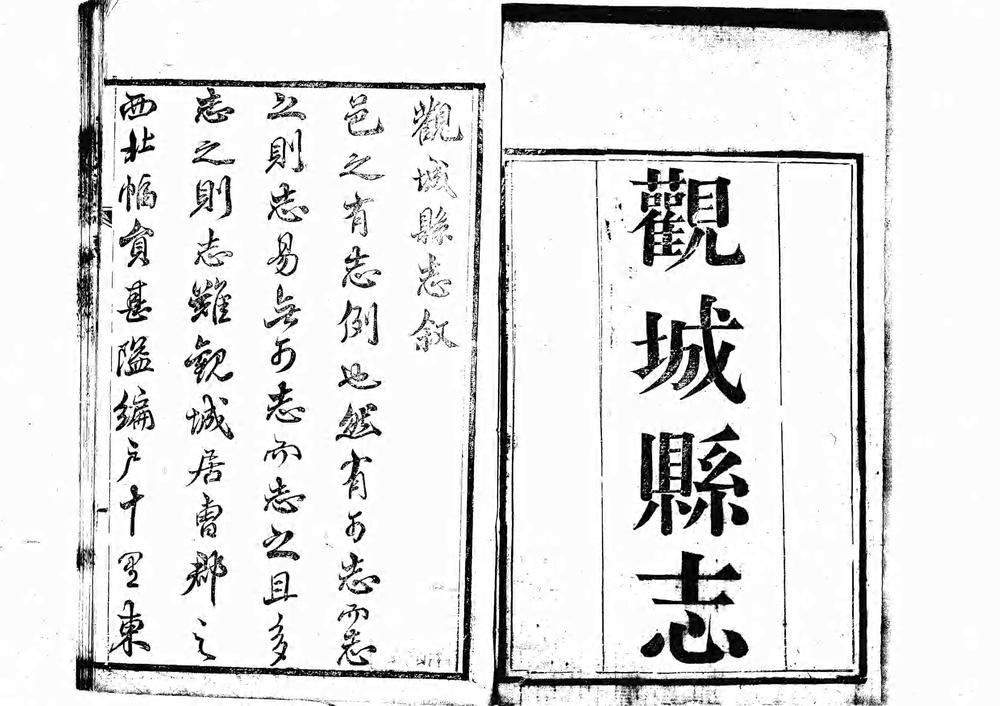 觀城縣志
觀城縣志叙
邑之有志例也然有可志而志
之則志易無可志而志之且多
志之則志難觀城居曹郡之
西北幅員甚隘編户十里東